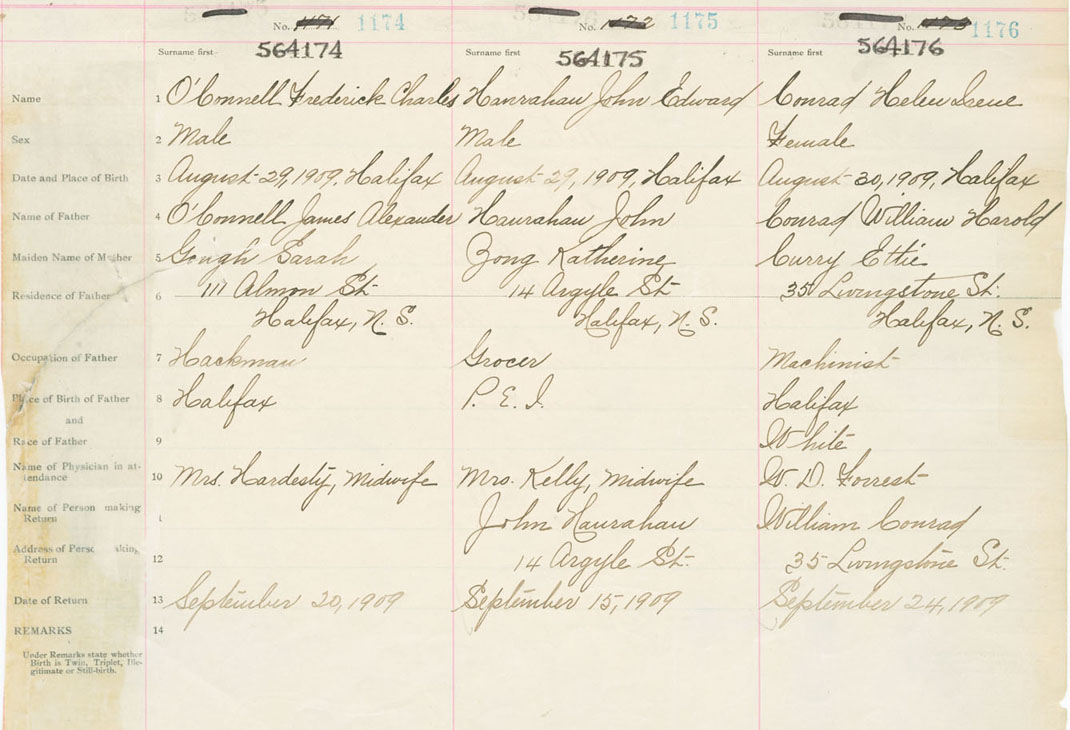 No. 1171 1174 No. 1172 1175 No. 1173 1176
Surname first 564174 Surname first 564175 Surname first 564176
Name 1 O'Connell Frederick Charles Hanrahan John Edward Conrad Helen Irene
Sex 2 Male Male Female
Date and Place of Birth 3 August 29, 1909, Halifax August 29, 1909, Halifax August 30, 1909, Halifax
Name of Father 4 O'Connell James Alexander Hanrahan John Conrad William Harold
Maiden Name of Mother 5 Gough Sarah Zong Katherine Curry Ettie
Residence of Father 6 111 Almon St. 14 Argyle St. 35 Livingstone St.
Halifax, N. S. Halifax, N. S. Halifax, N. S.
Occupation of Father 7 Hackman Grocer Machinist
Place of Birth of Father 8 Halifax P. E. I. Halifax
and
Race of Father 9 White
Name of Physician in at-
tendance 10 Mrs. Hardesty, Midwife Mrs. Kelly, Midwife W. D. Forrest
Name of Person making
Return 1 John Hanrahan William Conrad
Address of Person making
Return 12 14 Argyle St. 35 Livingstone St.
Date of Return 13 September 20, 1909 September 15, 1909 September 24, 1909
REMARKS 14
Under Remarks state whether
Birth is Twin, Triplet, Ille-
gitimate or Still-birth.